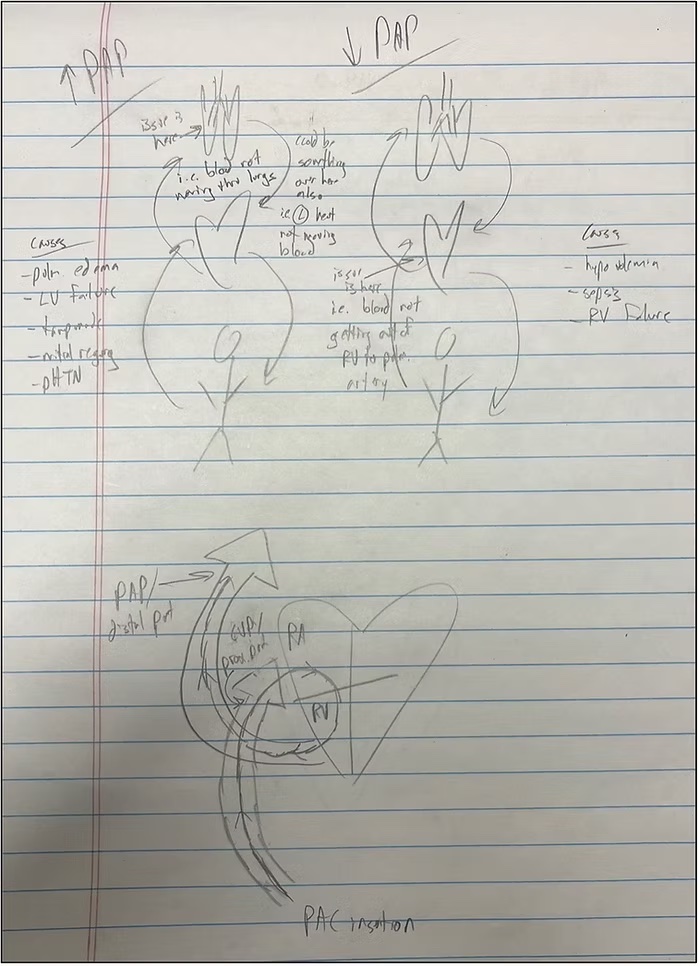 ↑ PAP
issue is
here.
i.e. blood not
moving thru lungs
could be
something
over here
also
i.e. Ⓛ heart
not moving
blood
Causes
- pulm edema
- LV failure
- tamponade
- mitral regurg
- pHTN
↓ PAP
issue
is here
i.e. blood not
getting out of
RV to pulm.
artery
Cause
- hypovolemia
- sepsis
- RV Failure
PAP/
distal port
CVP/
prox. port
RA
RV
PAC insertion